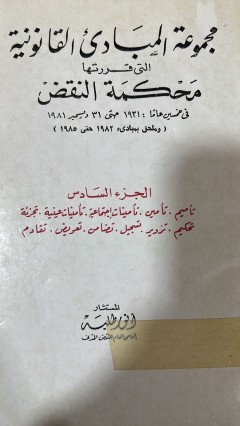 مجموعة المبادئ القانونية
التى قررتها
محكمة النقض
فى خمسين عامًا : ١٩٣١ حتى ٣١ ديسمبر ١٩٨١
( وملحق بمبادىء ١٩٨٢ حتى ١٩٨٥ )
الجزء السادس
تأميم . تأمين . تأمينات اجتماعية . تأمينات عينية . تجزئة
تحكيم . تزوير . تسجيل . تضامن . تعويض . تقادم
المستشار
أنور طلبه